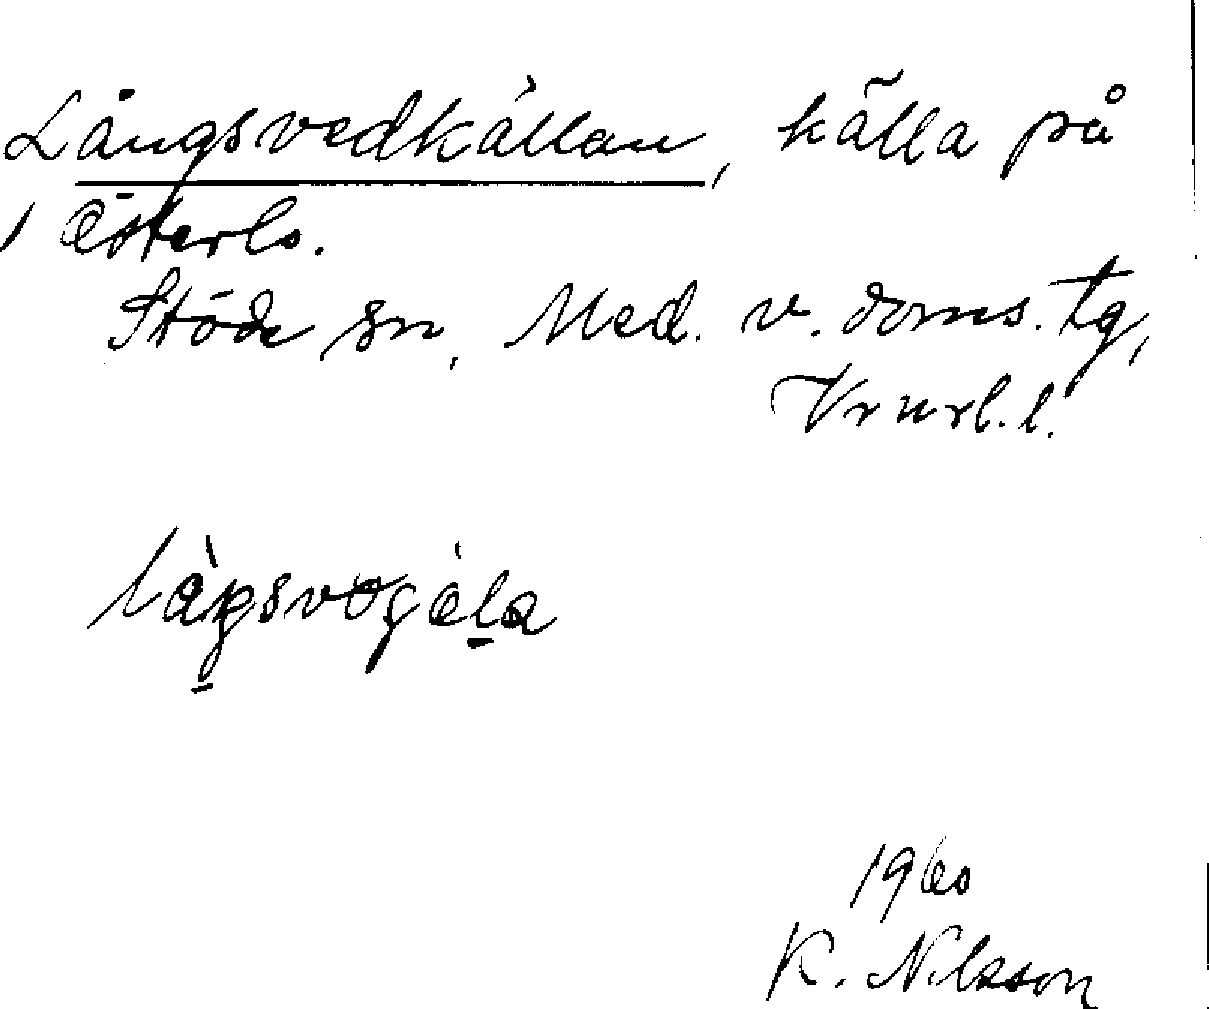 Långsvedkällan, källa på
Österlo.
Stöde sn, Med. v. doms. tg,
Vrnrl. l.
1960
K. Nilsson